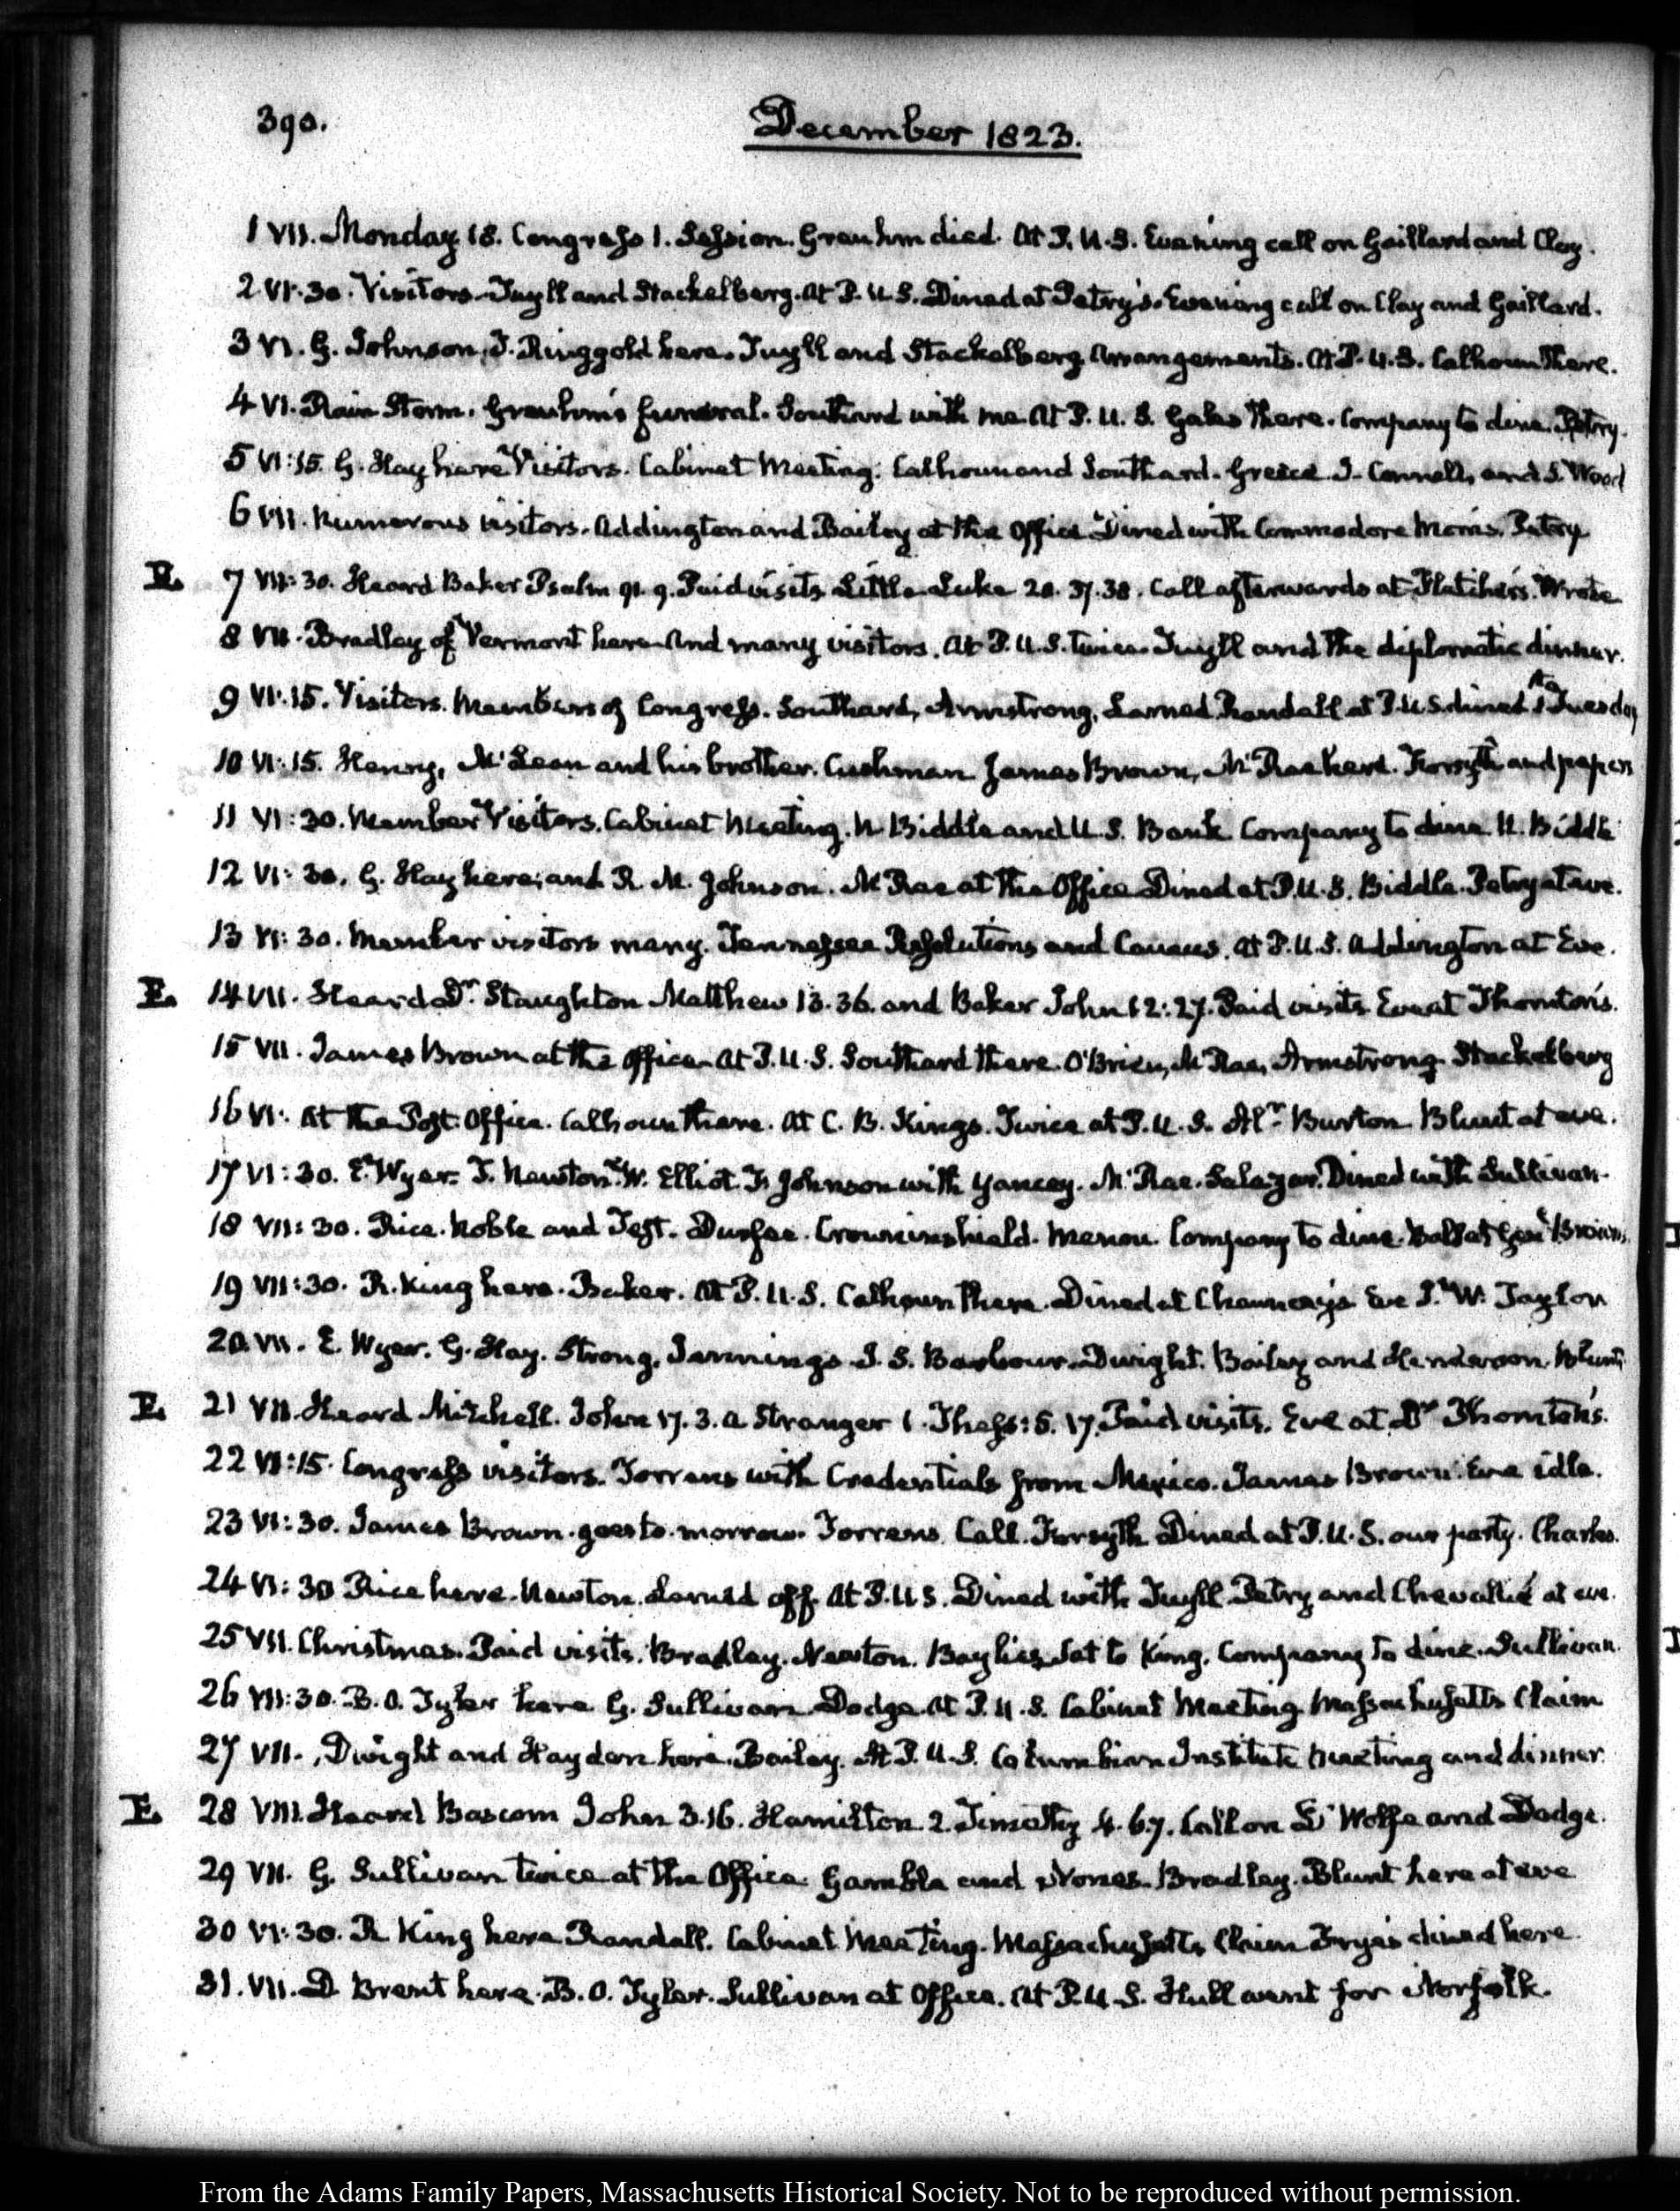 390.
December 1823.
1 VII. Monday. 18. Congress 1. Session. Greuhm died. At P. U. S. Evening call on Gaillard and Clay.
2 VI.30. Visitors. Tuyll and Stackelberg. At P. U. S. Dined at Petry's. Evening call on Clay and Gaillard.
3 VI. G. Johnson, T. Ringgold here. Tuyll and Stackelberg Arrangements. At P. U. S. Calhoun there.
4 VI. Rain Storm. Greuhm's funeral. Southard with me At P. U. S. Gales there. Company to dine. Petry.
5 VI:15. G. Hay here Visitors. Cabinet Meeting. Calhoun and Southard. Greece. J. Connell, and S. Wood
6 VII. Numerous visitors. Addington and Bailey at the Office Dined with Commodore Morris. Petry
E. 7 VII:30. Heard Baker Psalm 91. 9. Paid visits Little Luke 20. 37.38. Call afterwards at Fletcher's. Wrote
8 VII. Bradley of Vermont here and many visitors. At P. U. S. twice. Tuyll and the diplomatic dinner.
9 VI.15. Visitors. Members of Congress. Southard, Armstrong, Larned Randall at P. U S. dined Tuesday
10 VI:15. Henry, McLean and his brother. Cushman James Brown, McRae here. Forsyth and papers
11 VI:30. Member Visitors. Cabinet Meeting. N Biddle and U. S. Bank Company to dine. N. Biddle
12 VI:30. G. Hay here, and R. M. Johnson. McRae at the Office Dined at P. U. S. Biddle. Petry at eve.
13 VI:30. Member visitors many. Tennessee Resolutions and Caucus. At P. U. S. Addington at Eve.
E. 14 VII. Heard Dr. Staughton Matthew 13.36. and Baker John 12:27. Paid visits Eve at Thornton's.
15 VII. James Brown at the Office. At P. U. S. Southard there. O'Brien, McRae, Armstrong. Stackelberg
16 VI: At the Post Office. Calhoun there. At C. B. King's. Twice at P. U. S. Burton Blunt at eve.
17 VI:30. E. Wyer. T. Newton. W. Elliot. F. Johnson with Yancey. McRae. Salazar. Dined with Sullivan.
18 VII:30. Rice. Noble and Test. Durfee. Crowninshield. Menou. Company to dine. Ball at Genl Brown's
19 VII:30. R. King here. Baker. At P. U. S. Calhoun there. Dined at Chauncey's Eve J. W. Taylor
20 VII. E. Wyer. G. Hay. Strong. Jennings J. S. Barbour. Dwight. Bailey and Henderson. Blunt
E. 21 VII. Heard Mitchell. John 17. 3. a Stranger 1. Thess: 5. 17. Paid visits. Eve at Dr Thornton's.
22 VI:15. Congress visitors. Torrens with Credentials from Mexico. James Brown. Eve idle.
23 VI:30. James Brown. goes to-morrow. Torrens Call. Forsyth Dined at P. U. S. our party. Charles.
24 VI:30 Rice here. Newton. Larned off. At P. U S. Dined with Tuyll. Petry and Chevallié at eve.
25 VII. Christmas. Paid visits. Bradley. Newton. Baylies Sat to King. Company to dine. Sullivan.
26 VII:30. B. O. Tyler here G. Sullivan Dodge. At P. U. S. Cabinet Meeting Massachusetts Claim
27 VII. Dwight and Hayden here. Bailey. At P. U. S. Columbian Institute Meeting and dinner
E. 28 VIII. Heard Bascom John 3.16. Hamilton. 2. Timothy 4. 6.7. Call on D'Wolfe and Dodge.
29 VII. G. Sullivan twice at the Office. Gamble and Bradley. Blunt here at eve
30 VI:30. R King here Randall. Cabinet Meeting. Massachusetts Claim Frye's dined here.
31. VII. D. Brent here. B. O. Tyler. Sullivan at Office. At P. U. S. Hull went for Norfolk.
From the Adams Family Papers, Massachusetts Historical Society. Not to be reproduced without permission.